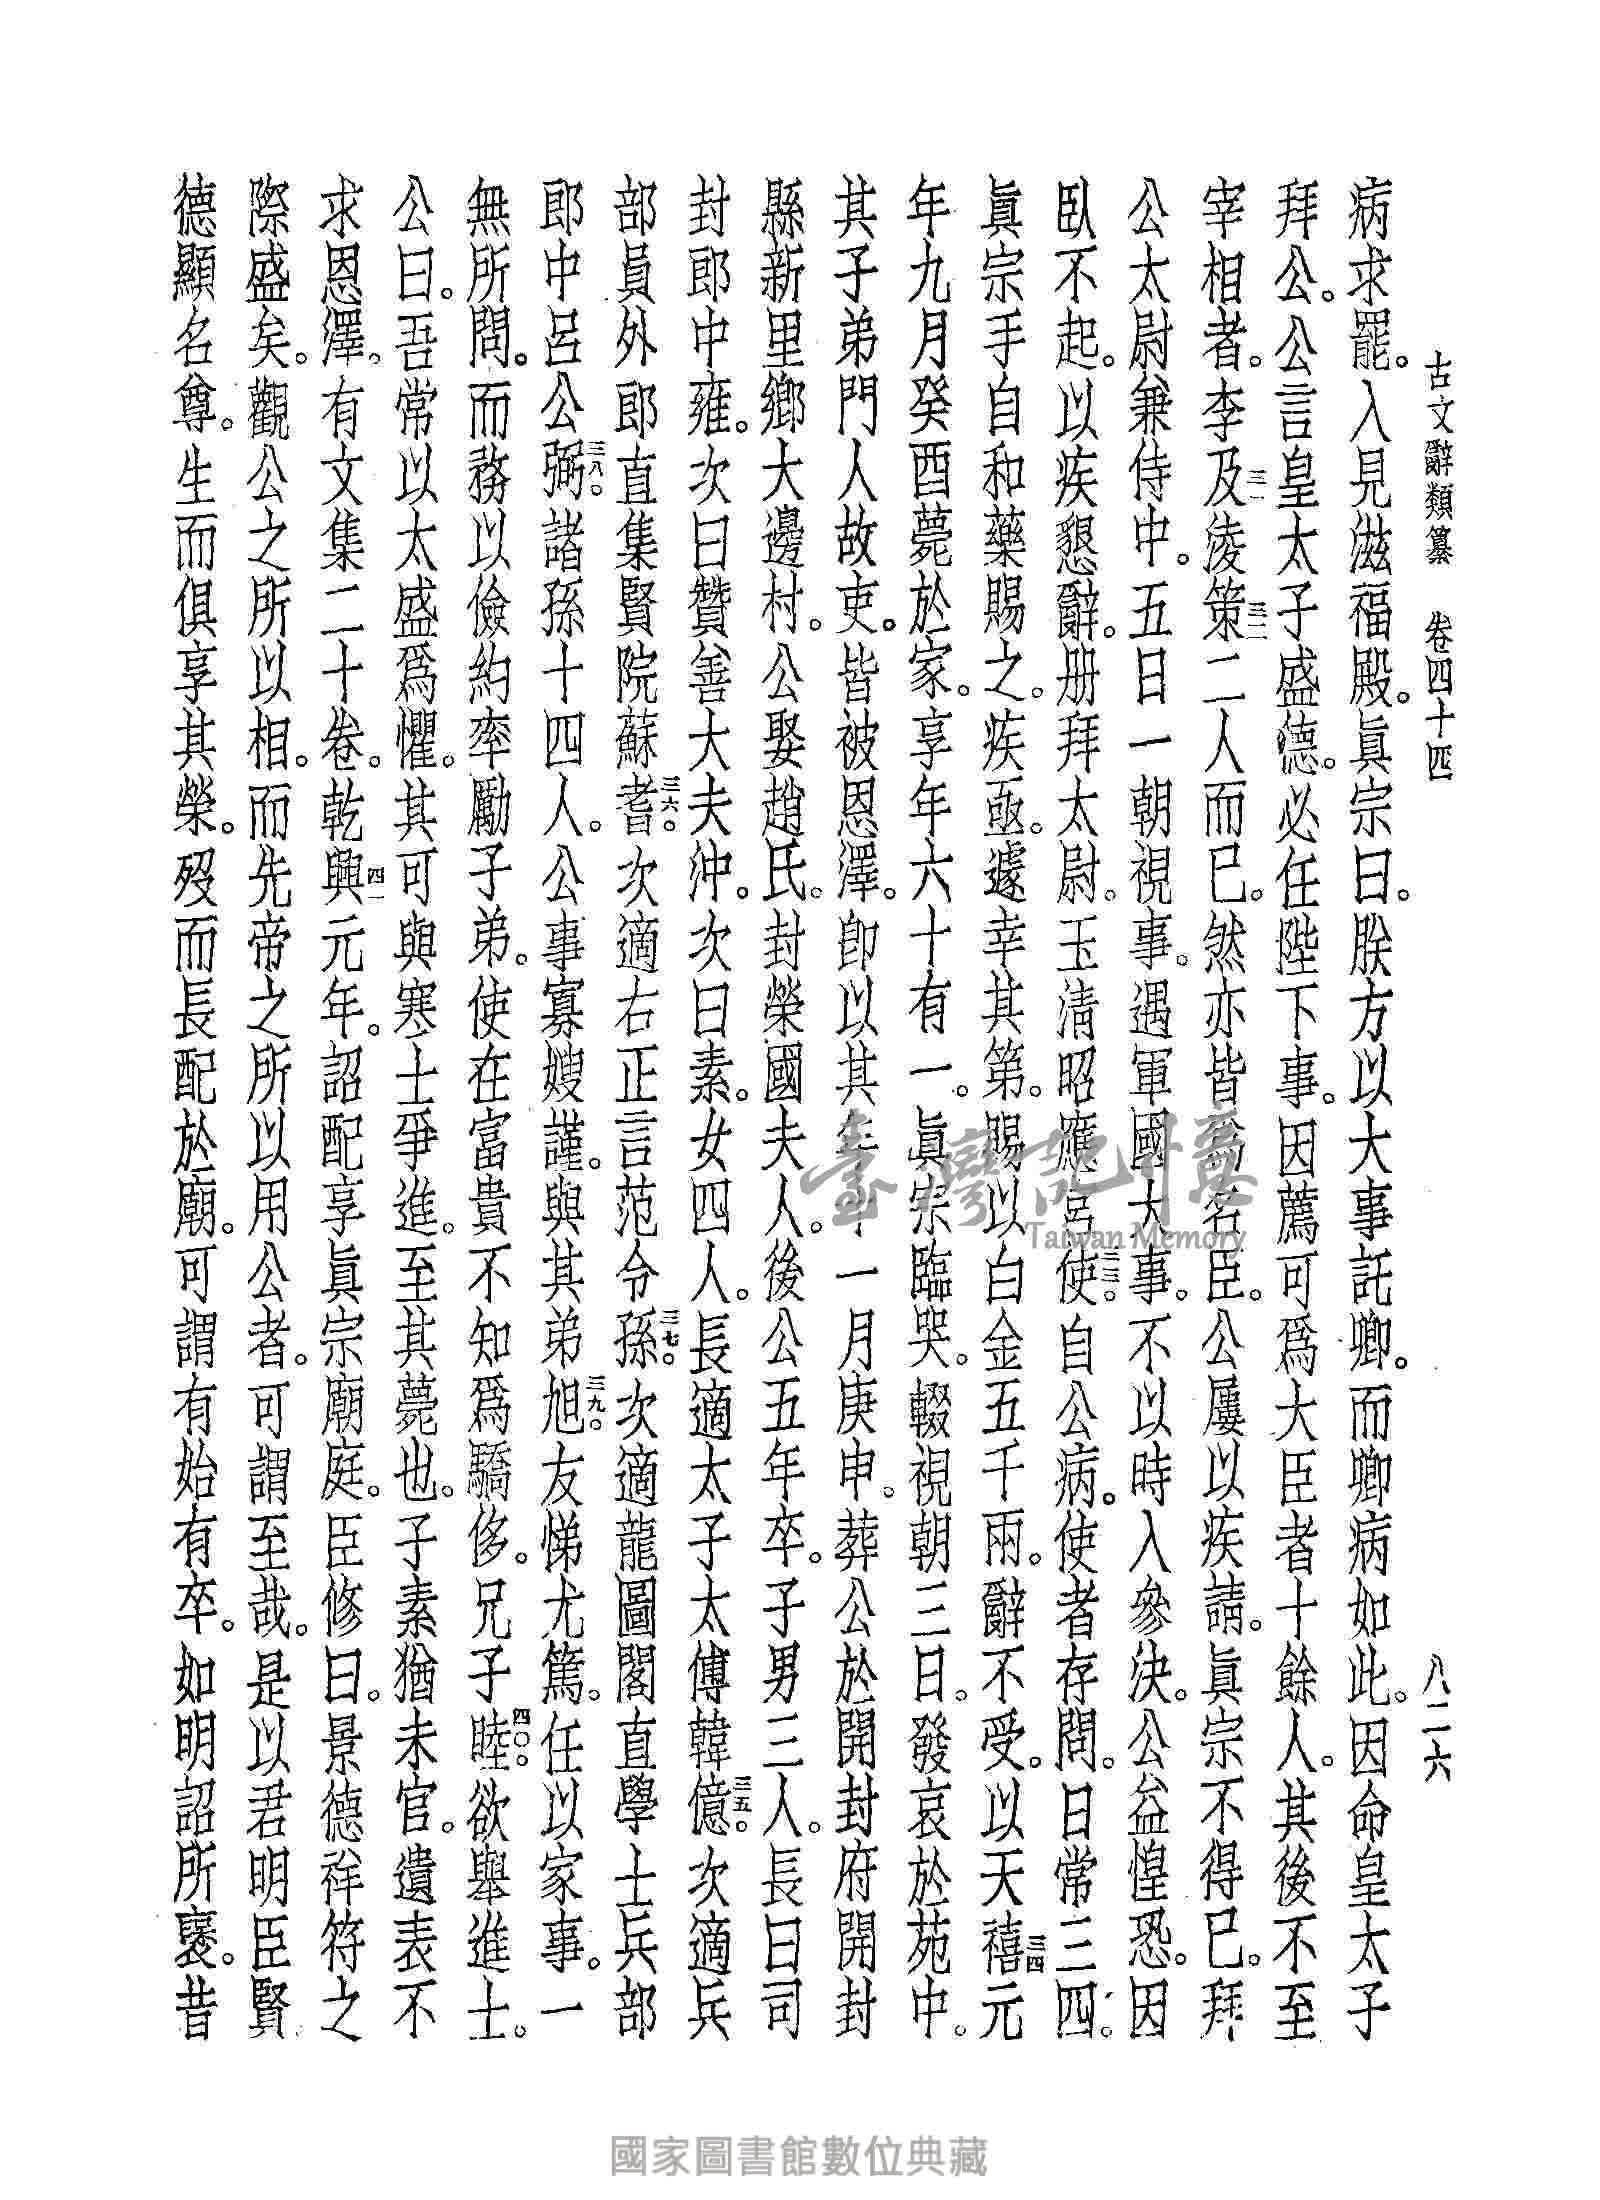 古文辭類纂　卷四十四　八二六
病求罷。入見滋福殿。眞宗曰。朕方以大事託卿。而卿病如此。因命皇太子
拜公。公言皇太子盛德。必任陛下事。因薦可爲大臣者十餘人。其後不至
宰相者。李及三一淩策三二二人而已。然亦皆爲名臣。公屢以疾請。眞宗不得已。拜
公太尉兼侍中。五日一朝視事。遇軍國大事。不以時入參決。公益惶恐。因
臥不起。以疾懇辭。册拜太尉。玉淸昭應宮使三三。自公病。使者存問。日常三四。
眞宗手自和藥賜之。疾亟。遽幸其第。賜以白金五千兩。辭不受。以天禧三四元
年九月癸酉薨於家。享年六十有一。眞宗臨哭。輟視朝三日。發哀於苑中。
其子弟門人故吏。皆被恩澤。卽以其年十一月庚申。葬公於開封府開封
縣新里鄉大邊村。公娶趙氏。封榮國夫人。後公五年卒。子男三人。長曰司
封郎中雍。次曰贊善大夫沖。次曰素。女四人。長適太子太傅韓億三五。次適兵
部員外郎直集賢院蘇耆三六。次適右正言范令孫三七。次適龍圖閣直學士兵部
郎中呂公弼三八。諸孫十四人。公事寡嫂謹。與其弟旭三九。友悌尤篤。任以家事。一
無所問。而務以儉約率勵子弟。使在富貴不知爲驕侈。兄子睦四〇。欲舉進士。
公曰。吾常以太盛爲懼。其可與寒士爭進。至其薨也。子素猶未官。遺表不
求恩澤。有文集二十卷。乾興四一元年。詔配享眞宗廟庭。臣修曰。景德祥符之
際盛矣。觀公之所以相。而先帝之所以用公者。可謂至哉。是以君明臣賢
德顯名尊。生而俱享其榮。歿而長配於廟。可謂有始有卒。如明詔所褒。昔
臺灣記憶
Taiwan Memory
國家圖書館數位典藏